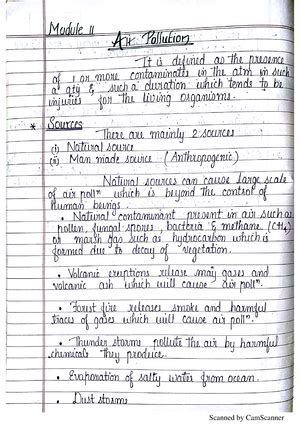 Module 11
Air Pollution
It is defined as the presence
of 1 or more contaminates in the atm in such
a qty & such a duration which tends to be
injuries for the living organisms.
* Sources
There are mainly 2 sources
(i) Natural source
(ii) Man made source (Anthropogenic)
Natural sources can cause large scale
of air pollⁿ which is beyond the control of
Human beings
• Natural contaminant present in air such as
pollen, fungal spores, bacteria & methane (CH₄)
or marsh gas such as hydrocarbon which is
formed due to decay of vegetation.
• Volcanic eruptions release many gases and
volcanic ash which will cause air pollⁿ.
• Forest fire releases smoke and harmful
traces of gases which will cause air pollⁿ.
• Thunder storms pollute the air by harmful
chemicals they produce.
• Evaporation of salty water from ocean.
• Dust storms
Scanned by CamScanner